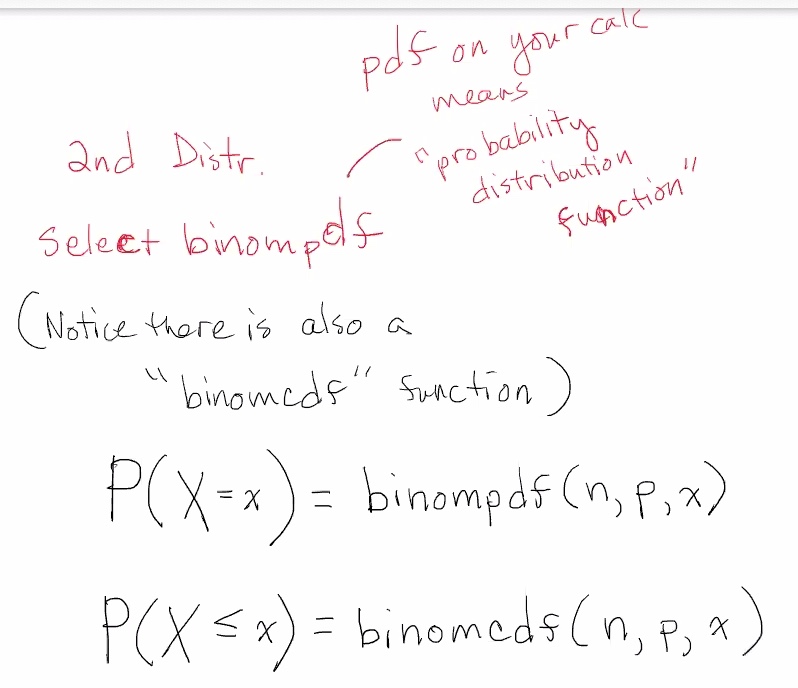 pdf on your calc
means
"probability
distribution
function"
2nd Distr.
Select binompdf
(Notice there is also a
"binomcdf" function)
P(X=x) = binompdf(n, p, x)
P(X≤x) = binomcdf(n, p, x)